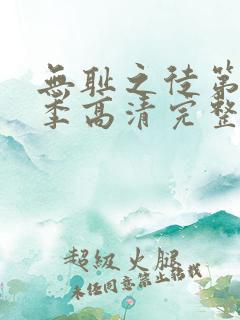 無耻之徒第
季高清完整
超級火腿
未经同意禁止转载